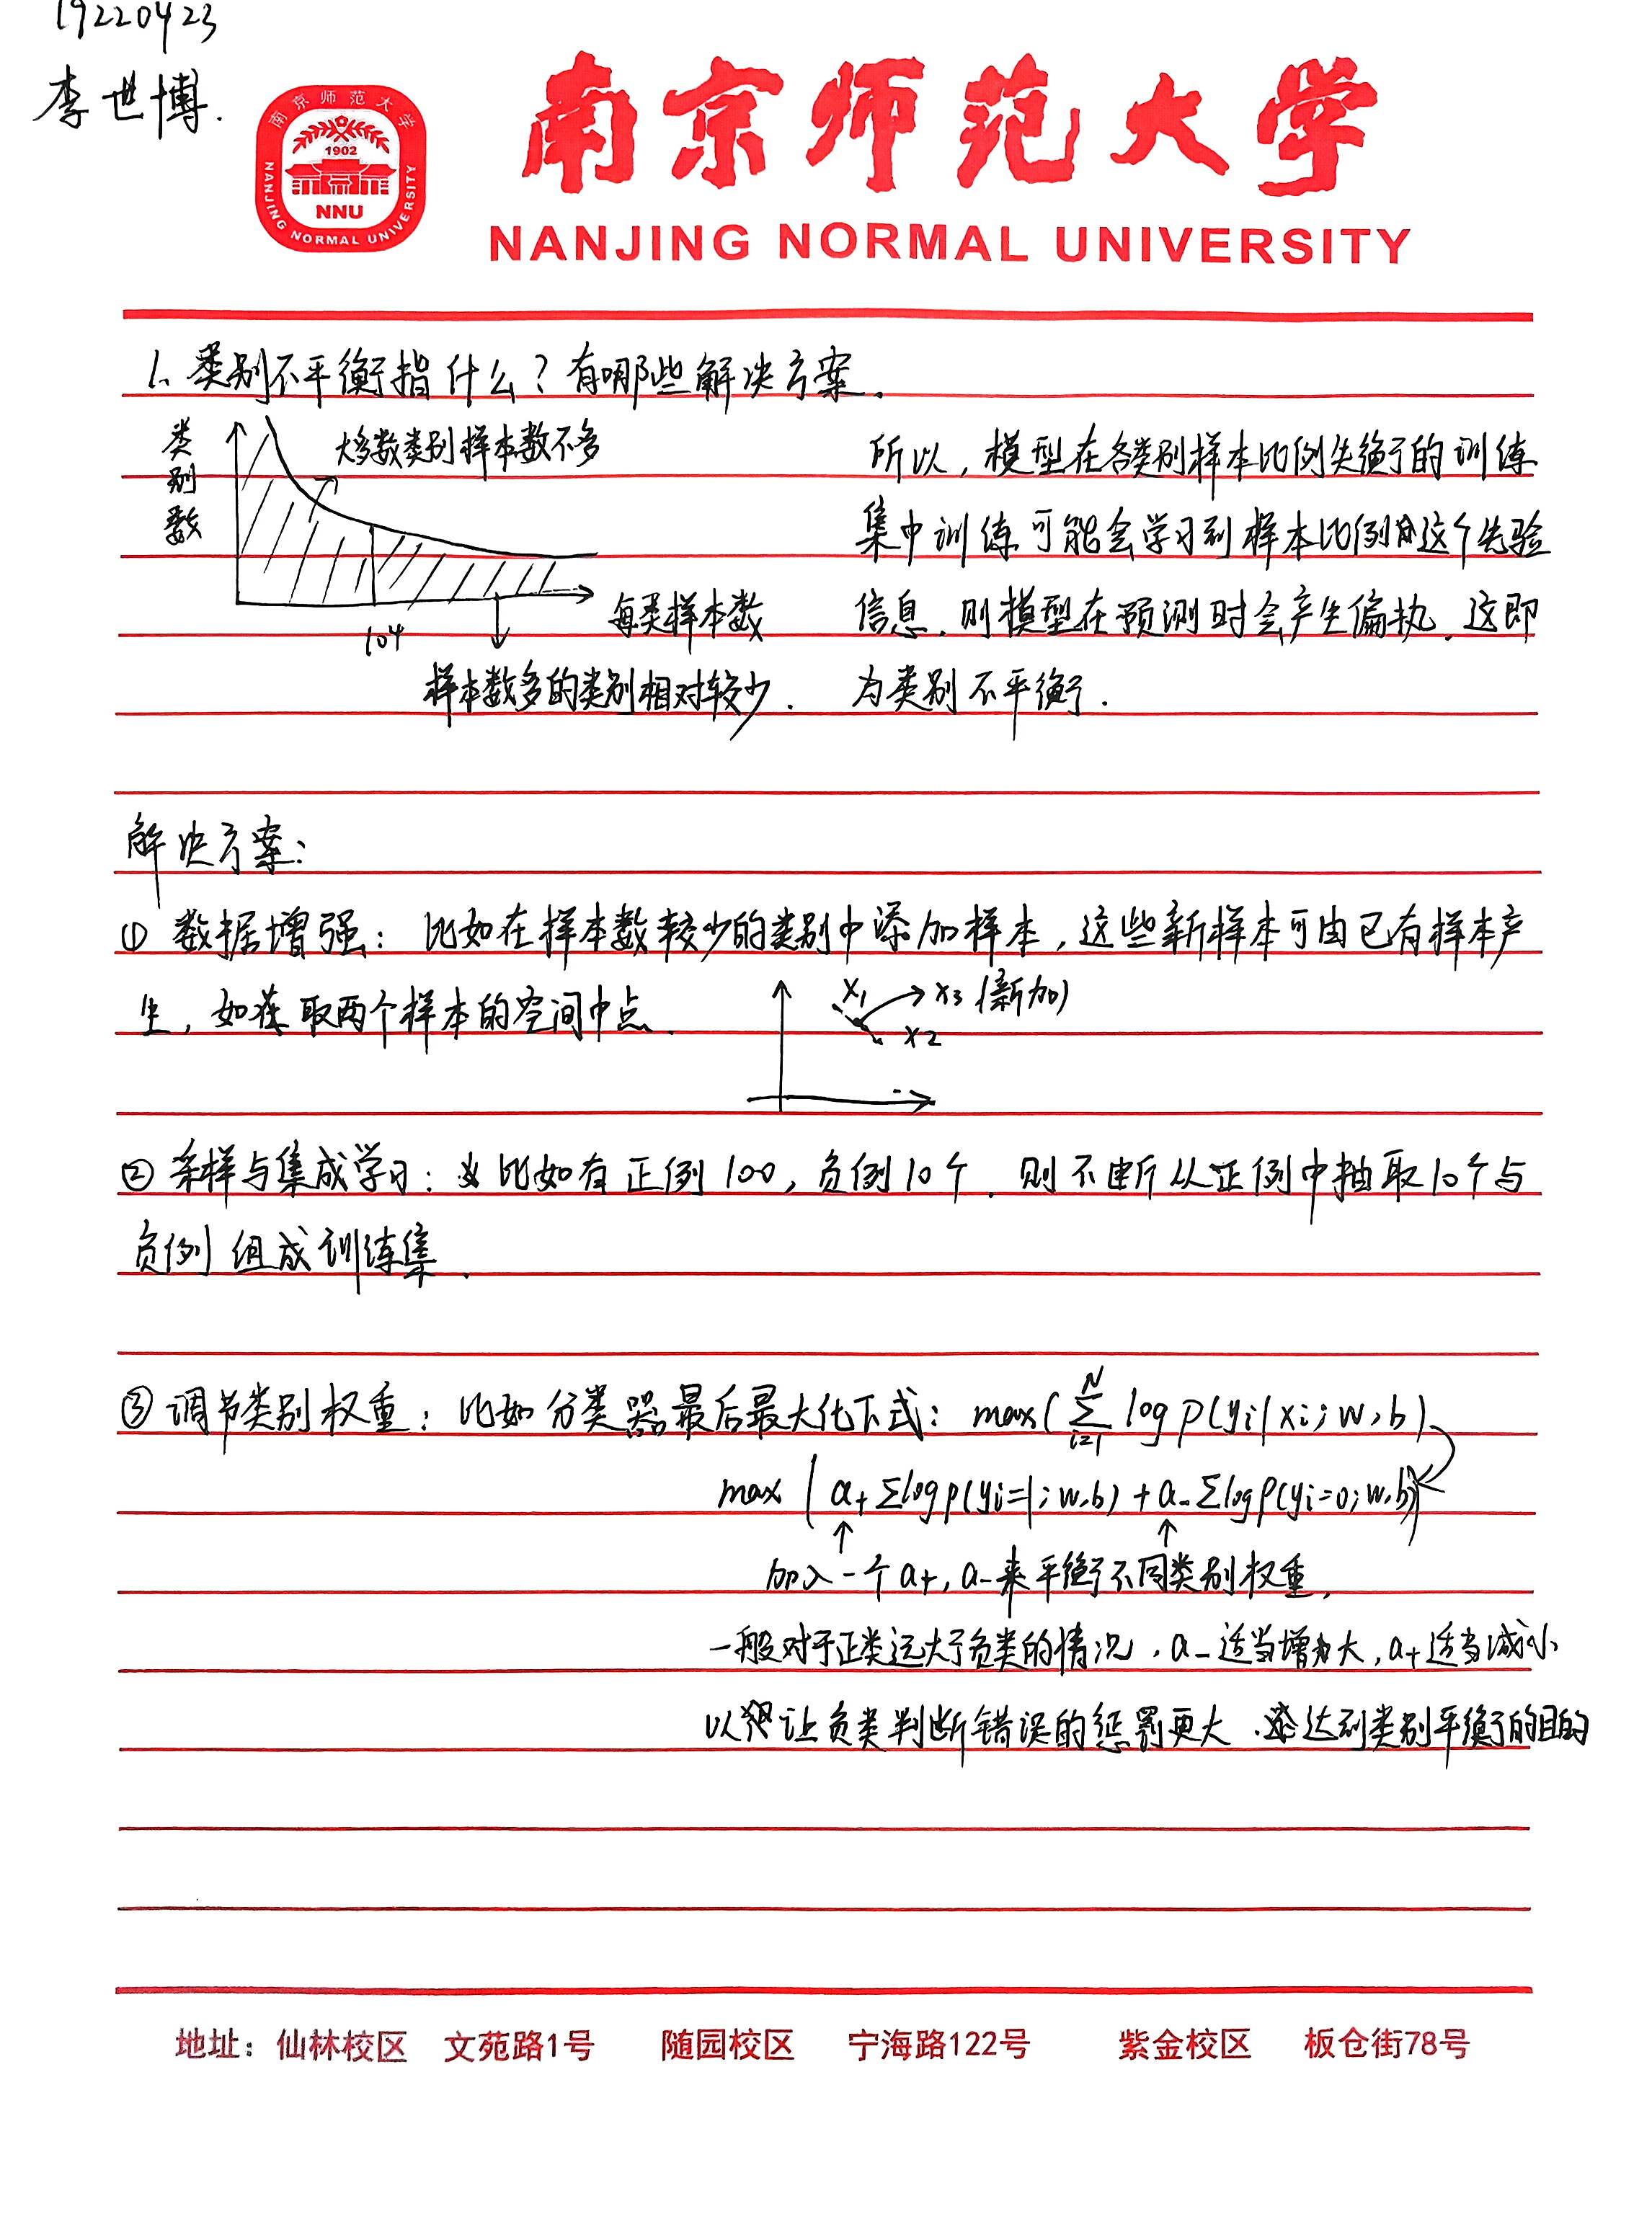 19220423
李世博.
南京师范大学
1902
NNU
NANJING NORMAL UNIVERSITY
南京师范大学
NANJING NORMAL UNIVERSITY
1、类别不平衡指什么？有哪些解决方案.
类别数
大多数类别样本数不多
104
每类样本数
样本数多的类别相对较少.
所以，模型在各类别样本比例失衡的训练
集中训练可能会学习到样本比例的这个先验
信息，则模型在预测时会产生偏执，这即
为类别不平衡.
解决方案：
① 数据增强：比如在样本数较少的类别中添加样本，这些新样本可由已有样本产
生，如取两个样本的空间中点.
x1
x3 (新加)
x2
② 采样与集成学习：比如有正例100，负例10个. 则不断从正例中抽取10个与
负例组成训练集.
③ 调节类别权重：比如分类器最后最大化下式：max(∑_{i=1}^{N} log p(yi|xi;w,b)
max(a+∑log p(yi=1;w,b)+a-∑log p(yi=0;w,b))
加入一个a+, a-来平衡不同类别权重,
一般对于正类远大于负类的情况，a-适当增大，a+适当减小
以让负类判断错误的惩罚更大.达到类别平衡的目的
地址：仙林校区 文苑路1号 随园校区 宁海路122号 紫金校区 板仓街78号